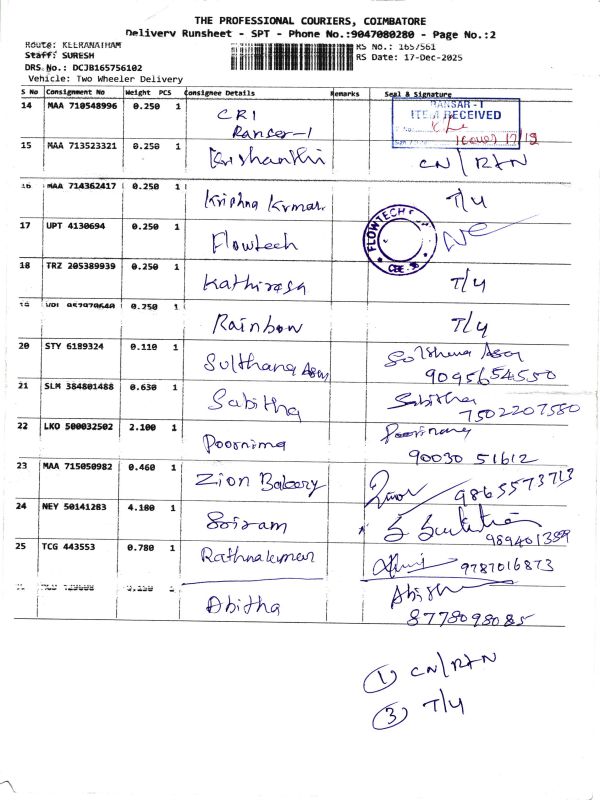 THE PROFESSIONAL COURIERS, COIMBATORE
Delivery Runsheet - SPT - Phone No.:9047080280 - Page No.:2
Route: KEERANATHAM
RS No.: 1657561
Staff: SURESH
RS Date: 17-Dec-2025
DRS No.: DCJB165756102
Vehicle: Two Wheeler Delivery
S No Consignment No Weight PCS Consignee Details Remarks Seal & Signature
14 MAA 710548996 0.250 1 CRI
Rancer-1
RANSAR - I
ITEM RECEIVED
15 MAA 713523321 0.250 1 Krishanthi CN/RTN
16 MAA 714362417 0.250 1 Krishna Kumar. T/4
17 UPT 4130694 0.250 1 Flowtech FLOWTECH CBE
18 TRZ 205389939 0.250 1 Kathirasa T/4
0.250 1 Rainbow T/4
20 STY 6189324 0.110 1 Sulthana
9095654550
21 SLM 384801488 0.630 1 Sabitha Sabitha
7502207580
22 LKO 500032502 2.100 1 Poornima
90030 51612
23 MAA 715050982 0.460 1 Zion Bakery 9865573713
24 NEY 50141283 4.180 1 Sriram
9894401389
25 TCG 443553 0.780 1 Rathnakumar 9787016873
Abitha
8778098085
① CN/RTN
③ T/4